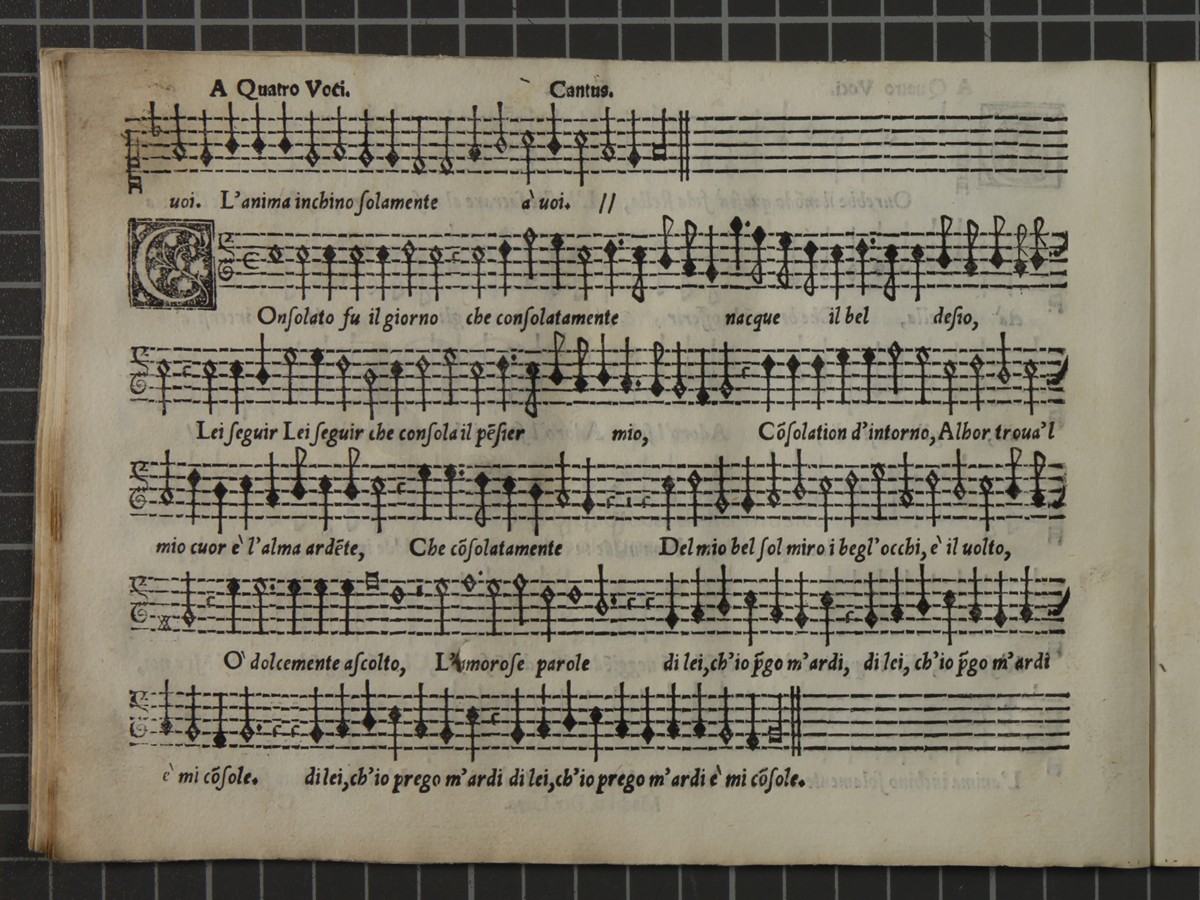 A Quatro Voci. Cantus.
uoi. L'anima inchino ſolamente à uoi. //
COnſolato fu il giorno che conſolatamente nacque il bel deſio,
Lei ſeguir Lei ſeguir che conſola il pẽſier mio, Cõſolation d'intorno, Alhor troua'l
mio cuor è l'alma ardẽte, Che cõſolatamente Del mio bel ſol miro i begl'occhi, è il uolto,
O' dolcemente aſcolto, L'amoroſe parole di lei, ch'io p̃go m'ardi, di lei, ch'io p̃go m'ardi
è mi cõſole. di lei, ch'io prego m'ardi di lei, ch'io prego m'ardi è mi cõſole.